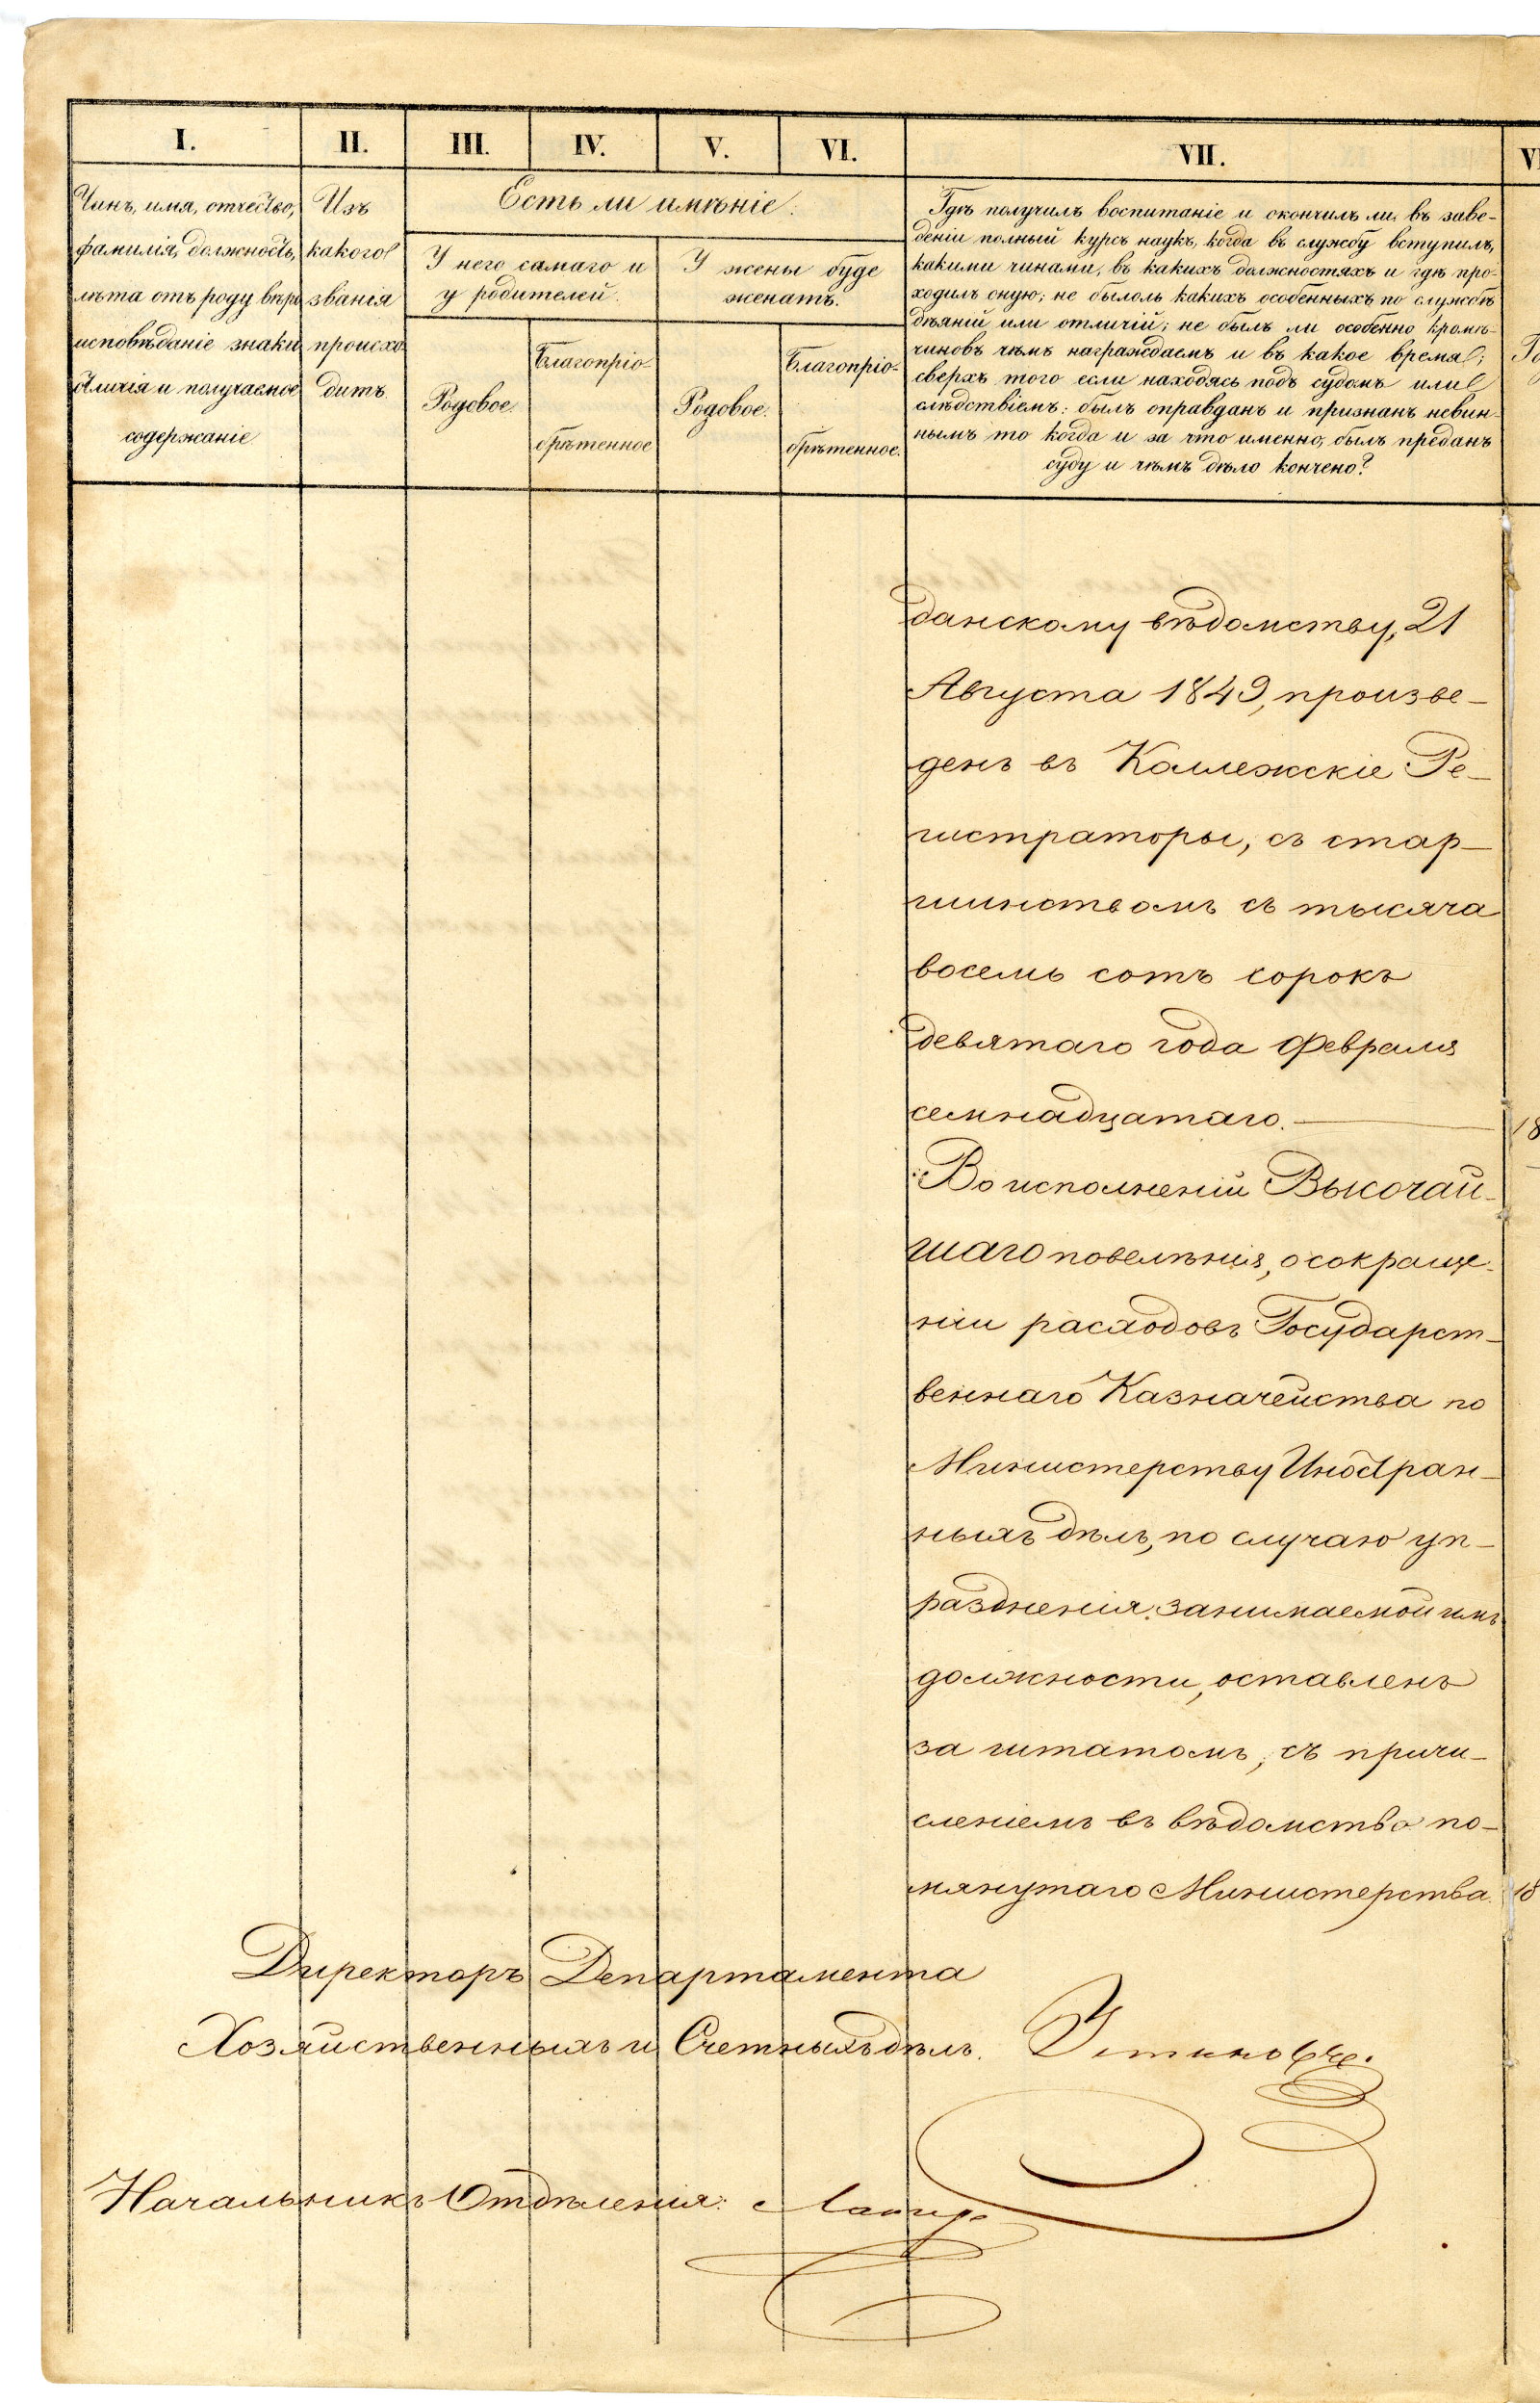 I.
II.
III.
IV.
V.
VI.
VII.
Чинъ, имя, отчество,
фамилія, должность,
лѣта отъ роду вѣро
исповѣданіе знаки
отличія и получаемое
содержаніе
Изъ
какого
званія
происхо
дитъ
Есть ли имѣніе.
У него самаго и
у родителей.
У жены буде
женатъ.
Родовое.
Благопріо-
брѣтенное
Родовое.
Благопріо-
брѣтенное.
Гдѣ получилъ воспитаніе и окончилъ ли въ заве-
деніи полный курсъ наукъ, когда въ службу вступилъ,
какими чинами, въ какихъ должностяхъ и гдѣ про-
ходилъ оную; не былоль какихъ особенныхъ по службѣ
дѣяній или отличій; не былъ ли особенно кромѣ
чиновъ чѣмъ награждаемъ и въ какое время;
сверхъ того если находясь подъ судомъ или
слѣдствіемъ: былъ оправданъ и признанъ невин-
нымъ то когда и за что именно, былъ преданъ
суду и чѣмъ дѣло кончено?
данскому вѣдомству, 21
Августа 1849, произве-
денъ въ Коллежскіе Ре-
гистраторы, съ стар-
шинствомъ съ тысяча
восемь сотъ сорокъ
девятаго года Февраля
семнадцатаго.
Во исполненіи Высочай-
шаго повелѣнія, о сокраще-
ніи расходовъ Государст-
веннаго Казначейства по
Министерству Иностран-
ныхъ дѣлъ, по случаю уп-
раздненія занимаемой имъ
должности, оставленъ
за штатомъ, съ причи-
сленіемъ въ вѣдомство по-
мянутаго Министерства.
Директоръ Департамента
Хозяйственныхъ и Счетныхъ дѣлъ.
Начальникъ Отдѣленія: